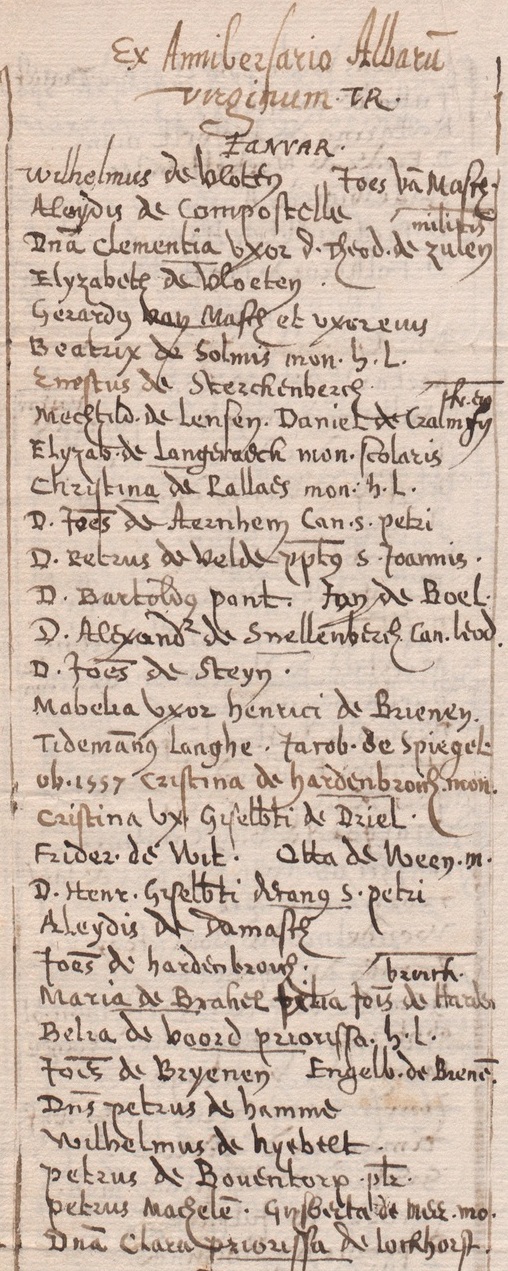 Ex Anniversario Albarū
virginum. TR.
IANVAR.
Wilhelmus de Vloten Joes vā Masch.
Aleydis de Compostelle
militis
Dnā Clementia vxor d. Theod. de zulen
Elyzabeth de Vloeten.
Gerardus van Masch et vxor eius
Beatrix de Solmis mon. h. L.
Ernestus de Sterckenberch
Mechtild. de Lensen. Daniel de
Elyzab. de Langeraeck mon. scolaris
Christina de Rallaes mon. h. L.
D. Joēs de Aernhem Can. s. petri
D. Petrus de Velde ppt9 s. Joannis.
D. Bartold9 pant. Jan de Roel.
D. Alexand2 de Snellenberch. Can. leod.
D. Joēs de Steyn.
Mabelia vxor henrici de Brienen.
Tidemān9 Langhe. Jacob. de Spiegel.
ob. 1557 Cristina de hardenbroich. mon.
Cristina vx. Gyselbti de Driel.
Frider. de Wit. Otta de Ween. m.
D. Henr. Gyselbti decan9 s. petri
Aleydis de Damasch
Joēs de hardenbroich.
broich.
Maria de Brahel filia Jois de Harden
Belia de voord priorissa. h. L.
Joēs de Bryenen Engelb. de Brenē.
Dns petrus de hamme
Wilhelmus de hyebelt.
petrus de Boventorp. pbr.
petrus Machelē. Gysberta de Mer. mo.
Dnā Clara priorissa de lockhorst.